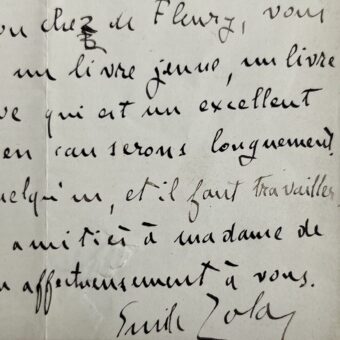 on chez de Fleury, vous
un livre jeune, un livre
ve qui est un excellent
en causerons longuement.
uelqu'un, et il faut travailler
amitiés à madame de
affectueusement à vous.
Emile Zola